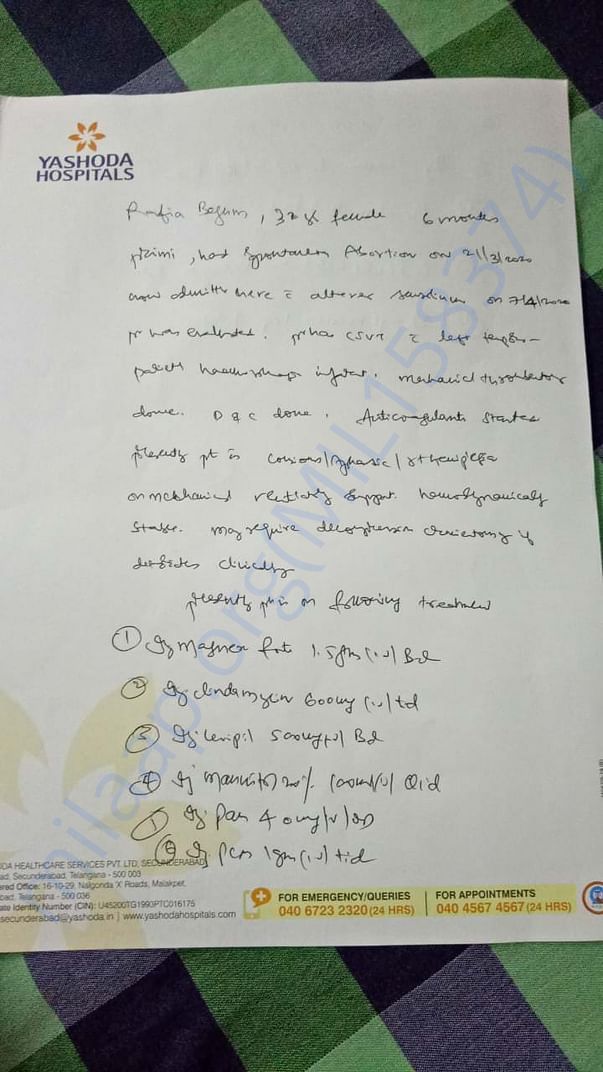 YASHODA
HOSPITALS
Begum, 32 female 6 months
primi, had Spontaneous Abortion on 21/3/2020
now here c altered on 7/4/2020
pt was evaluated. pt has CSVT c left
infarct. mechanical
done. D&C done. Anticoagulants started
presently pt is / Aphasic /
on mechanical support. hemodynamically
stable. may require if
clinically
presently pt is on following treatment
① Inj Magnex 1.5gm (IV) Bd
② Inj clindamycin 600mg (IV) td
③ Inj levipil 500mg (IV) Bd
④ Inj Mannitol 20% 100ml (IV) Qid
Inj Pan 40mg/IV/OD
Inj PCM 1gm (IV) tid
milaap.org(MIL158374)
DA HEALTHCARE SERVICES PVT. LTD, SECUNDERABAD
ad, Secunderabad, Telangana - 500 003
ered Office: 16-10-29, Nalgonda 'X' Roads, Malakpet,
bad, Telangana - 500 036
ate Identity Number (CIN): U45200TG1993PTC016175
secunderabad@yashoda.in | www.yashodahospitals.com
FOR EMERGENCY/QUERIES
040 6723 2320 (24 HRS)
FOR APPOINTMENTS
040 4567 4567 (24 HRS)